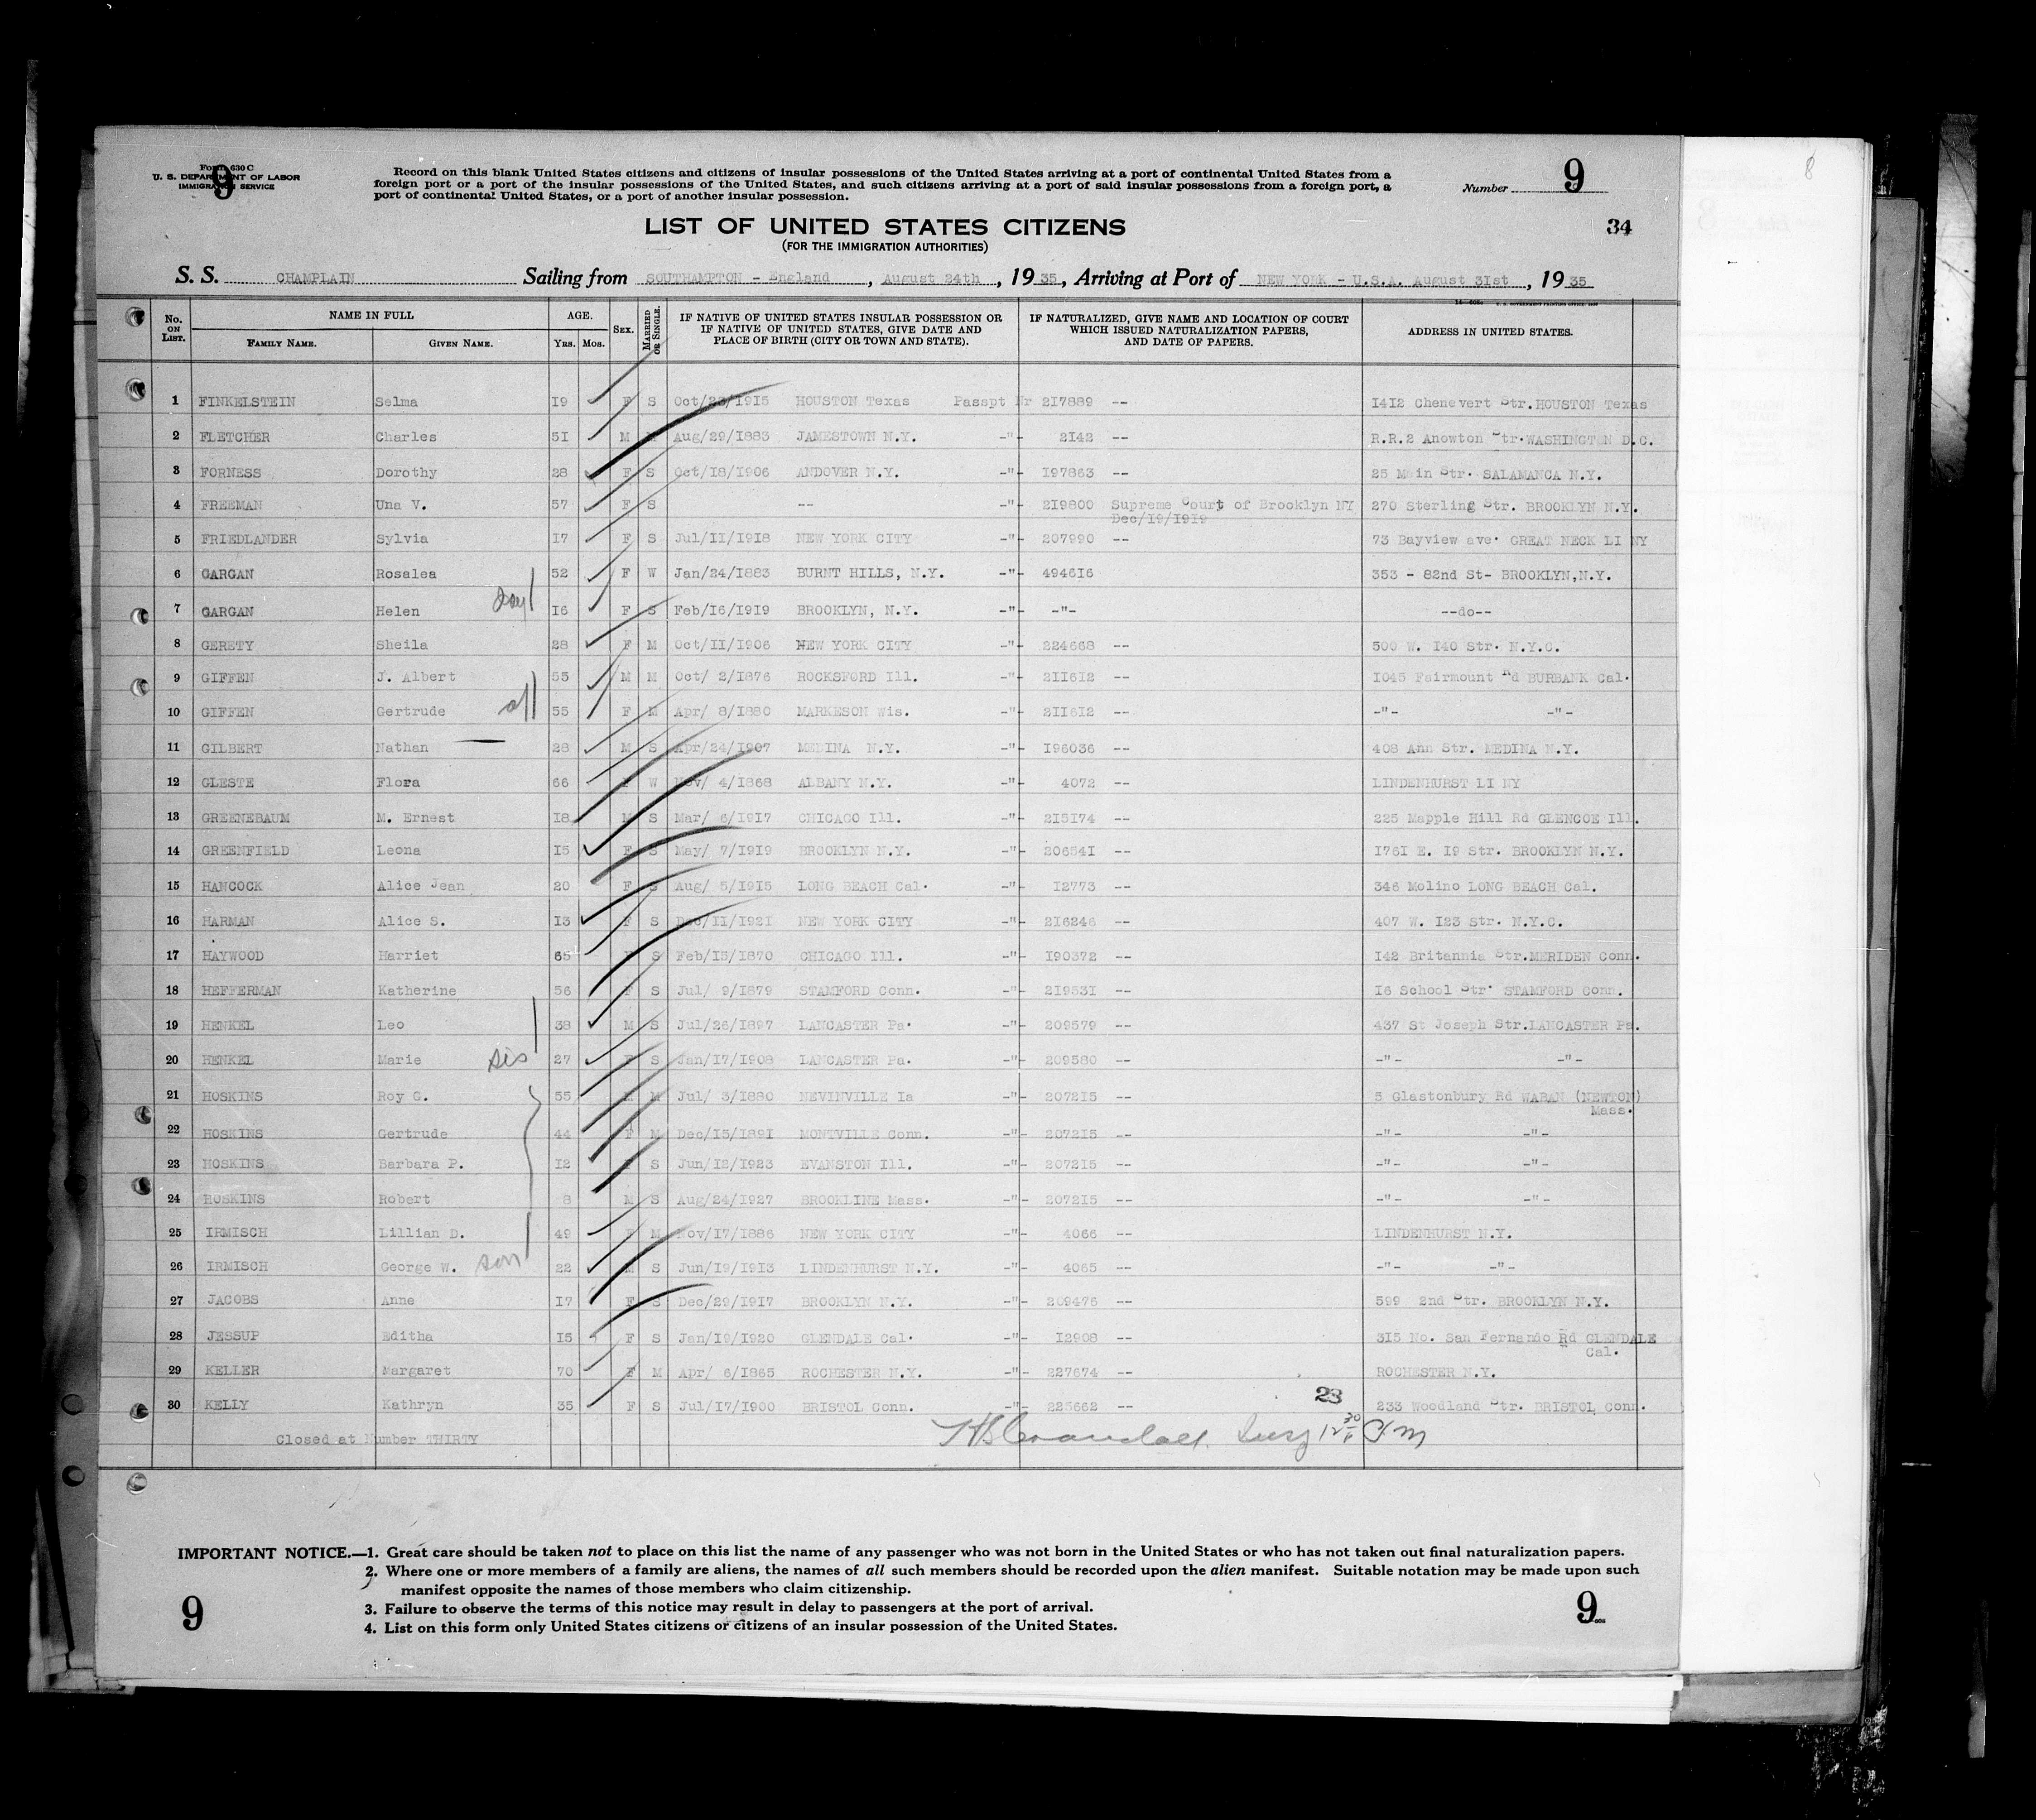 Form 630 C
U. S. DEPARTMENT OF LABOR
IMMIGRATION SERVICE
9
Record on this blank United States citizens and citizens of insular possessions of the United States arriving at a port of continental United States from a
foreign port or a port of the insular possessions of the United States, and such citizens arriving at a port of said insular possessions from a foreign port, a
port of continental United States, or a port of another insular possession.
Number 9
8
LIST OF UNITED STATES CITIZENS
34
(FOR THE IMMIGRATION AUTHORITIES)
S. S. CHAMPLAIN Sailing from SOUTHAMPTON - England, August 24th, 1935, Arriving at Port of NEW YORK - U.S.A. August 31st, 1935
No. ON LIST. NAME IN FULL FAMILY NAME. GIVEN NAME. AGE. YRS. MOS. SEX. MARRIED OR SINGLE. IF NATIVE OF UNITED STATES INSULAR POSSESSION OR IF NATIVE OF UNITED STATES, GIVE DATE AND PLACE OF BIRTH (CITY OR TOWN AND STATE). IF NATURALIZED, GIVE NAME AND LOCATION OF COURT WHICH ISSUED NATURALIZATION PAPERS, AND DATE OF PAPERS. ADDRESS IN UNITED STATES.
1 FINKELSTEIN Selma I9 F S Oct/ /I9I5 HOUSTON Texas Passpt Nr 2I7889 -- I4I2 Chenevert Str.HOUSTON Texas
2 FLETCHER Charles 5I M Aug/29/I883 JAMESTOWN N.Y. -"- 2I42 -- R.R.2 Anowton Str.WASHINGTON D.C.
3 FORNESS Dorothy 28 F S Oct/I8/I906 ANDOVER N.Y. -"- I97863 -- 25 Main Str. SALAMANCA N.Y.
4 FREEMAN Una V. 57 F S -- -"- 2I9800 Supreme Court of Brooklyn NY 270 Sterling Str. BROOKLYN N.Y.
Dec/I9/I9I9
5 FRIEDLANDER Sylvia I7 F S Jul/II/I9I8 NEW YORK CITY -"- 207990 -- 73 Bayview ave. GREAT NECK LI NY
6 GARGAN Rosalea 52 F W Jan/24/I883 BURNT HILLS, N.Y. -"- 4946I6 353 - 82nd St- BROOKLYN,N.Y.
7 GARGAN Helen I6 F S Feb/I6/I9I9 BROOKLYN, N.Y. -"- -"- --do--
8 GERETY Sheila 28 F M Oct/II/I906 NEW YORK CITY -"- 224668 -- 500 W. I40 Str. N.Y.C.
9 GIFFEN J. Albert 55 M M Oct/ 2/I876 ROCKSFORD Ill. -"- 2II6I2 -- I045 Fairmount Rd BURBANK Cal.
10 GIFFEN Gertrude all 55 F M Apr/ 8/I880 MARKESON Wis. -"- 2II6I2 -- -"- -"-
11 GILBERT Nathan 28 M S Apr/24/I907 MEDINA N.Y. -"- I96036 -- 408 Ann Str. MEDINA N.Y.
12 GLESTE Flora 66 F W Nov/ 4/I868 ALBANY N.Y. -"- 4072 -- LINDENHURST LI NY
13 GREENEBAUM M. Ernest I8 M S Mar/ 6/I9I7 CHICAGO Ill. -"- 2I5I74 -- 225 Mapple Hill Rd GLENCOE Ill.
14 GREENFIELD Leona I5 F S May/ 7/I9I9 BROOKLYN N.Y. -"- 20654I -- I76I E. I9 Str. BROOKLYN N.Y.
15 HANCOCK Alice Jean 20 F S Aug/ 5/I9I5 LONG BEACH Cal. -"- I2773 -- 346 Molino LONG BEACH Cal.
16 HARMAN Alice S. I3 F S Dec/II/I92I NEW YORK CITY -"- 2I6246 -- 407 W. I23 Str. N.Y.C.
17 HAYWOOD Harriet 65 S Feb/I5/I870 CHICAGO Ill. -"- I90372 -- I42 Britannia Str.MERIDEN Conn.
18 HEFFERMAN Katherine 56 F S Jul/ 9/I879 STAMFORD Conn. -"- 2I953I -- I6 School Str. STAMFORD Conn.
19 HENKEL Leo 38 M S Jul/26/I897 LANCASTER Pa. -"- 209579 -- 437 St Joseph Str.LANCASTER Pa.
20 HENKEL Marie sis 27 F S Jan/I7/I908 LANCASTER Pa. -"- 209580 -- -"- -"-
21 HOSKINS Roy G. 55 M M Jul/ 3/I880 NEVINVILLE Ia -"- 2072I5 -- 5 Glastonbury Rd WABAN (NEWTON)
Mass.
22 HOSKINS Gertrude 44 F M Dec/I5/I89I MONTVILLE Conn. -"- 2072I5 -- -"- -"-
23 HOSKINS Barbara P. I2 F S Jun/I2/I923 EVANSTON Ill. -"- 2072I5 -- -"- -"-
24 HOSKINS Robert 8 M S Aug/24/I927 BROOKLINE Mass. -"- 2072I5 -- -"- -"-
25 IRMISCH Lillian D. 49 F M Nov/I7/I886 NEW YORK CITY -"- 4066 -- LINDENHURST N.Y.
26 IRMISCH George W. son 22 M S Jun/I9/I9I3 LINDENHURST N.Y. -"- 4065 -- -"- -"-
27 JACOBS Anne I7 F S Dec/29/I9I7 BROOKLYN N.Y. -"- 209476 -- 599 2nd Str. BROOKLYN N.Y.
28 JESSUP Editha I5 F S Jan/I9/I920 GLENDALE Cal. -"- I2908 -- 3I5 No. San Fernando Rd GLENDALE
Cal.
29 KELLER Margaret 70 F M Apr/ 6/I865 ROCHESTER N.Y. -"- 227674 -- ROCHESTER N.Y.
30 KELLY Kathryn 35 F S Jul/I7/I900 BRISTOL Conn. -"- 225662 -- 233 Woodland Str. BRISTOL Conn.
23
Closed at Number THIRTY
IMPORTANT NOTICE.—1. Great care should be taken not to place on this list the name of any passenger who was not born in the United States or who has not taken out final naturalization papers.
2. Where one or more members of a family are aliens, the names of all such members should be recorded upon the alien manifest. Suitable notation may be made upon such
manifest opposite the names of those members who claim citizenship.
3. Failure to observe the terms of this notice may result in delay to passengers at the port of arrival.
4. List on this form only United States citizens or citizens of an insular possession of the United States.
9
9